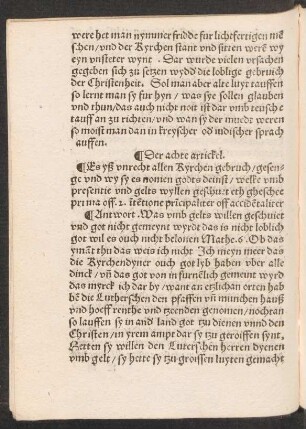 were het man nymmer fridde fur lichtfertigen mē
schen/vnd der Kyrchen stant vnd sitten werē wy
eyn vnsteter wynt. Dar wurde vielen vrsachen
gegeben sich zu setzen wydd die loblige gebruch
der Christenheit. Sol man aber alte luyt tauffen
so lernt man sy fur hyn/ was sye sollen glauben
vnd thun/das auch nicht noit ist dar vmb teutsche
tauff an zu richten/vnd wan sy der muede weren
so moist man dan in kreyscher od indischer sprach
auffen.
¶Der achte artickel.
¶Es yß vnrecht allen Kyrchen gebruch/gesen-
ge vnd wy sy es nomen godts deinst/ welke vmb
presentie vnd gelts wyllen geschuit
prima off. 2. itētione prīcipaliter off accidētaliter
¶Antwort. Was vmb gelts willen geschuiet
vnd got nicht gemeynt wyrdt das is nicht loblich
got wil es ouch nicht belonen Mathe. 6. Ob das
ymāt thu das weis ich nicht. Ich meyn mer das
die Kyrchendyner ouch got lyb haben vber alle
dinck/ vn̄ das got von in furnēlich gemeint wyrd
das myrck ich dar by/want an etzlichan orten hab
bē die Lutherschen den pfaffen vn̄ munchen hauß
vnd hoeff renthe vnd tzeenden genomen/nochtan
so lauffen sy in and land got tzu dienen vnnd den
Christen/in yrem ampt dar sy tzu geroiffen synt.
Hetten sy willen den Luterschen herren dyenen
vmb gelt/ sy hette sy tzu groissen luyten gemacht